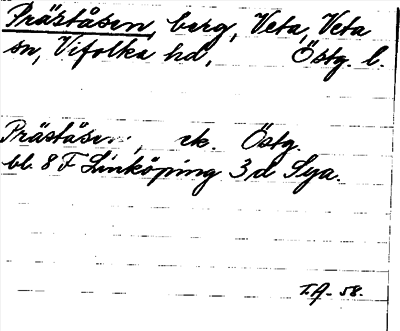 Präståsen, berg, Veta, Veta
sn, Vifolka hd, Östg. l.
Präståsen, ek. Östg.
bl. 8 F Linköping 3 d Sya.
T.A. 58.